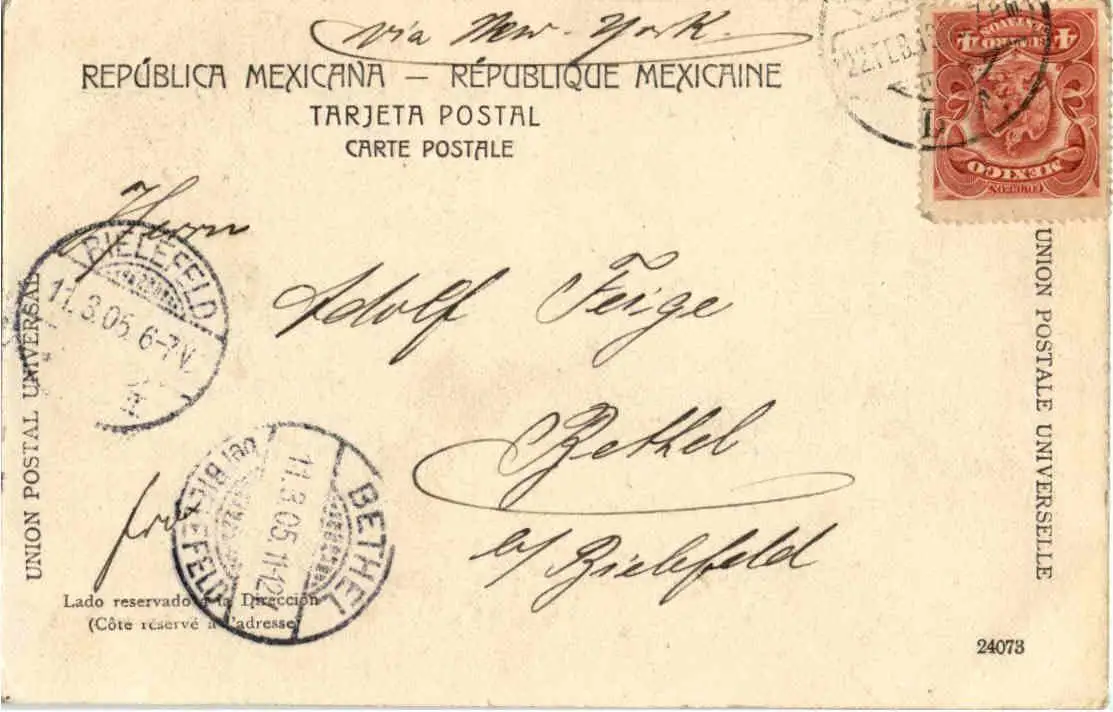 via New-York.
REPÚBLICA MEXICANA — RÉPUBLIQUE MEXICAINE
TARJETA POSTAL
CARTE POSTALE
CORREOS
MEXICO
4 4
22.FEB.
L
Herrn
Adolf Feige
Bethel
b/ Bielefeld
BIELEFELD
11.3.05 6-7V.
BETHEL
11.3.05.11-12
BIELEFELD
UNION POSTAL UNIVERSAL
UNION POSTALE UNIVERSELLE
Lado reservado á la Dirección
(Côté réservé à l'adresse)
24073